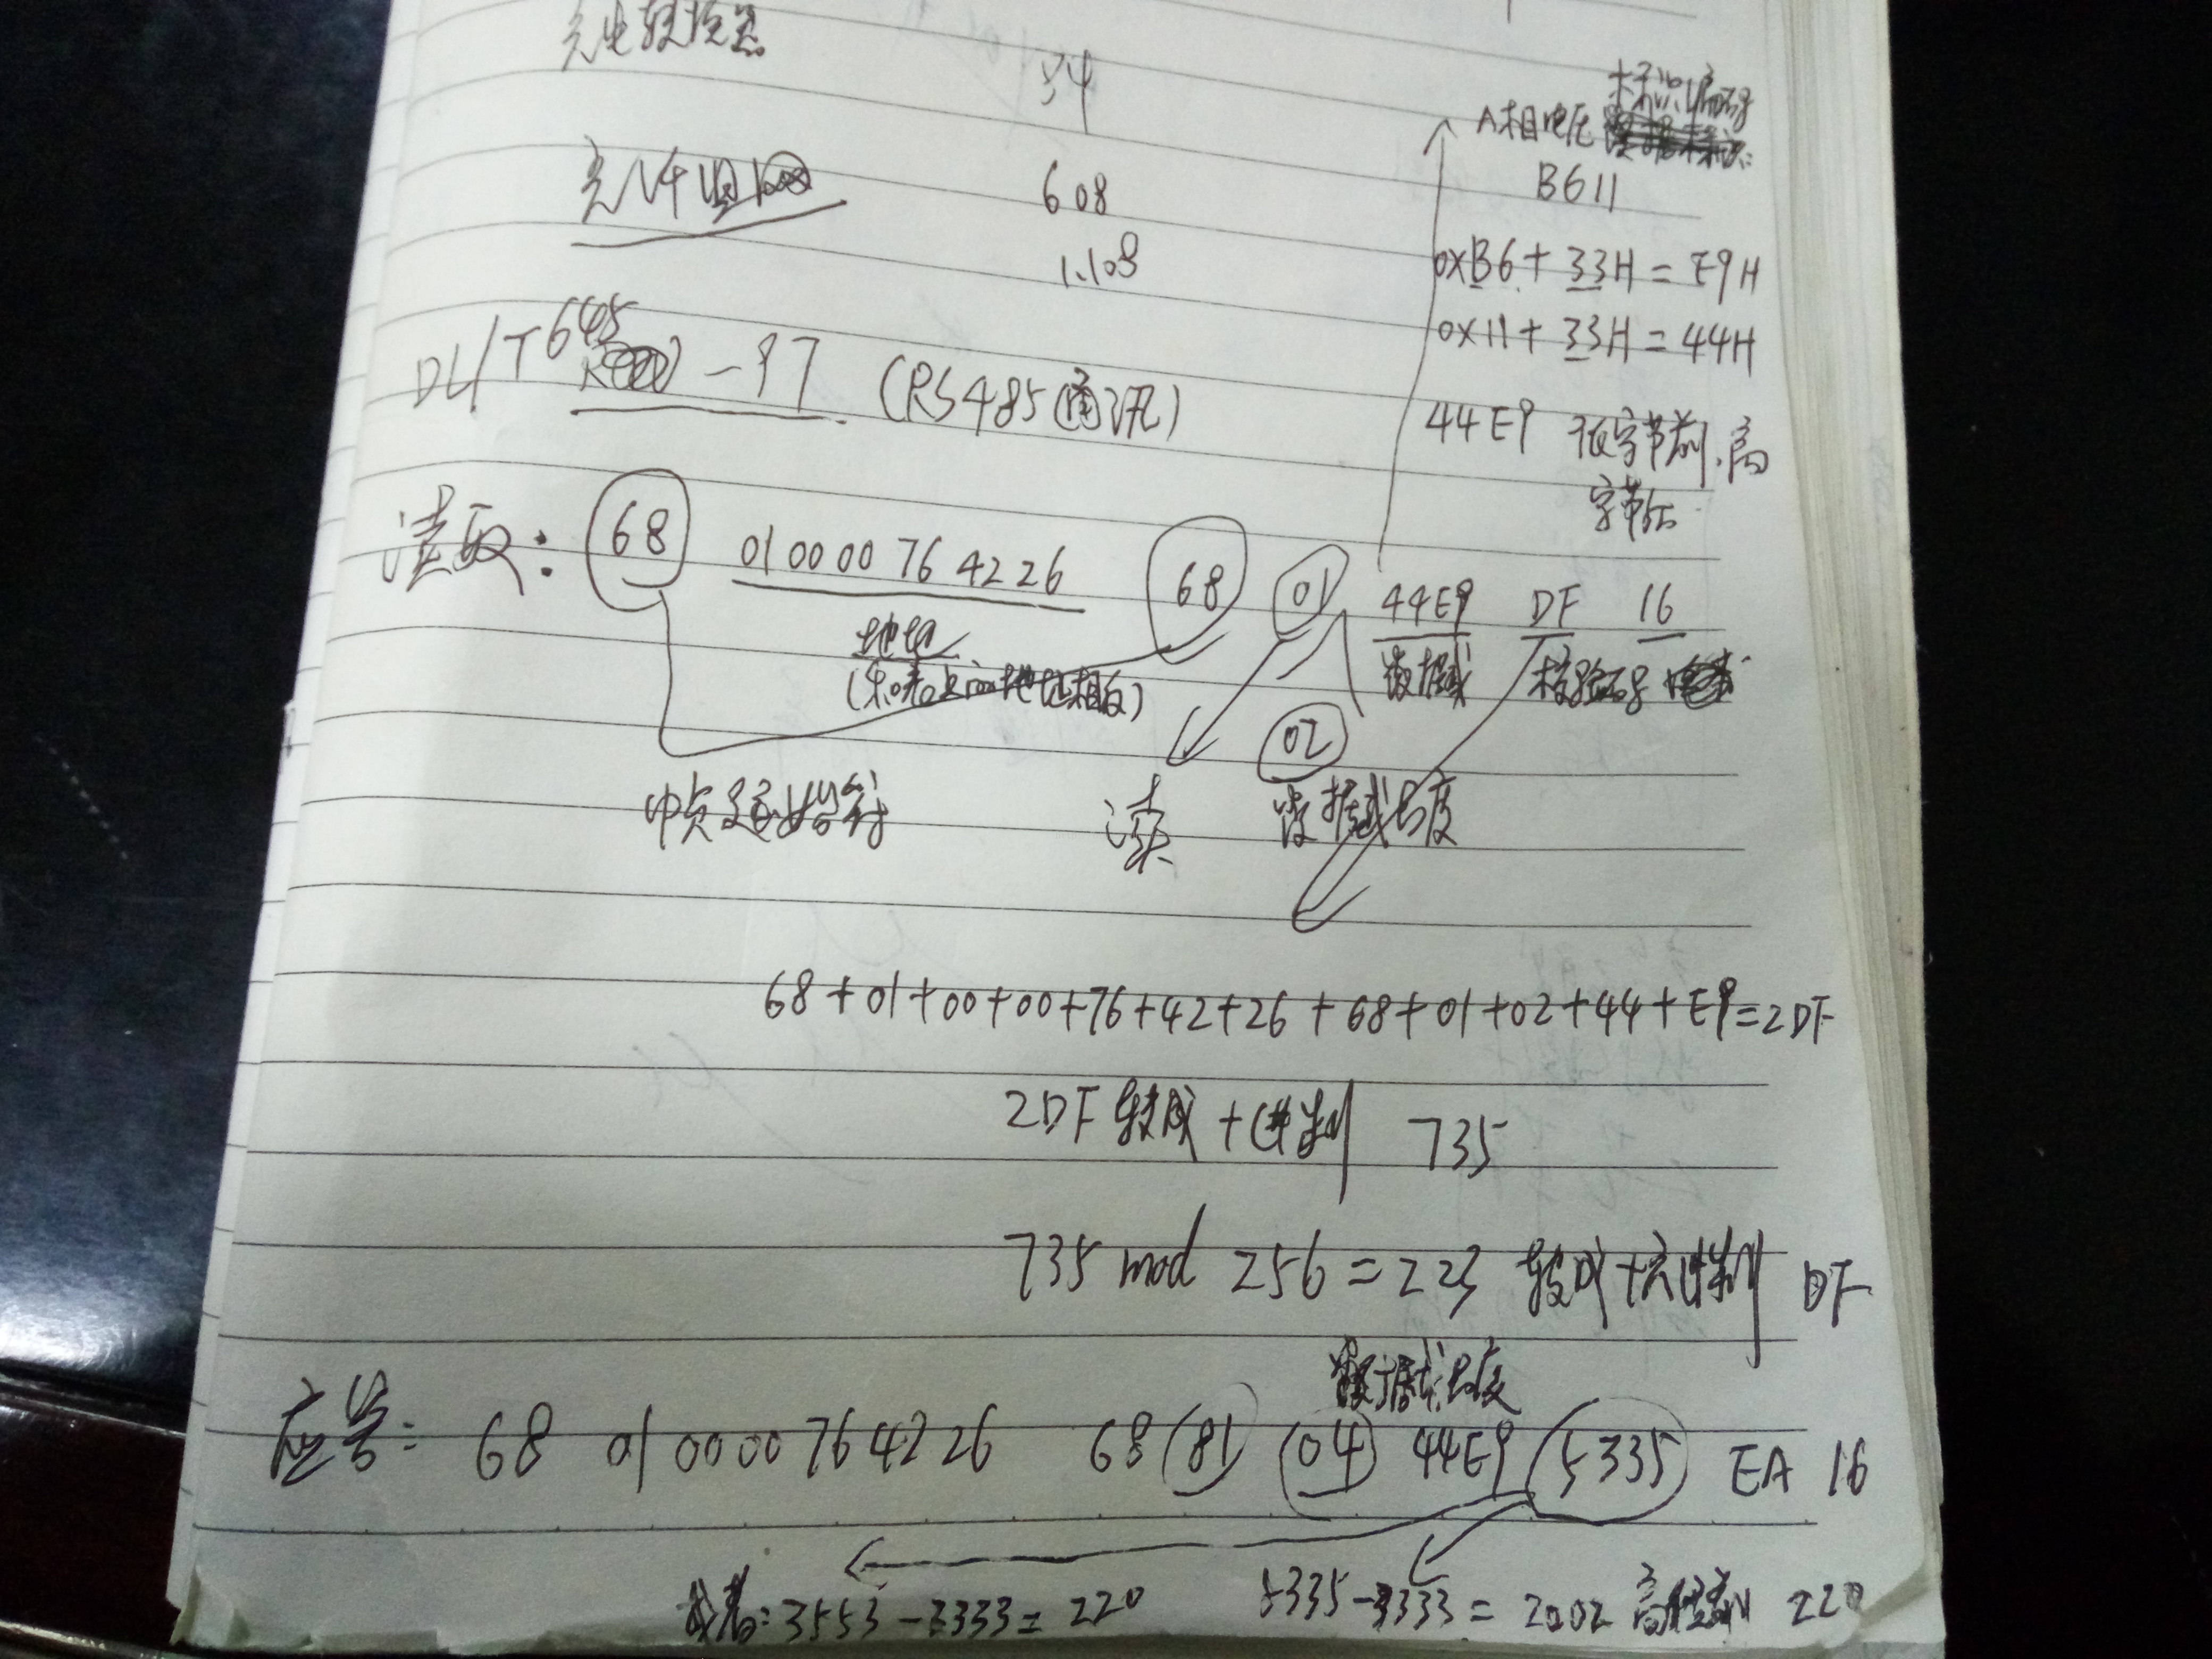 34
608
1.108
A相电压 标识编码
B611
0xB6+33H=E9H
0x11+33H=44H
44E9 低字节前.高
字节后
DL/T645-97 (RS485通讯)
读取: 68 01 00 00 76 42 26 68 01 44E9 DF 16
地址 数据域 校验码
地址相反)
02
帧起始符 读 数据域长度
68+01+00+00+76+42+26+68+01+02+44+E9=2DF
2DF 转成十进制 735
735 mod 256=223 转成十六进制 DF
数据域长度
应答: 68 01 00 00 76 42 26 68 81 04 44E9 5335 EA 16
或者:3553-3333=220 5335-3333=2002 220